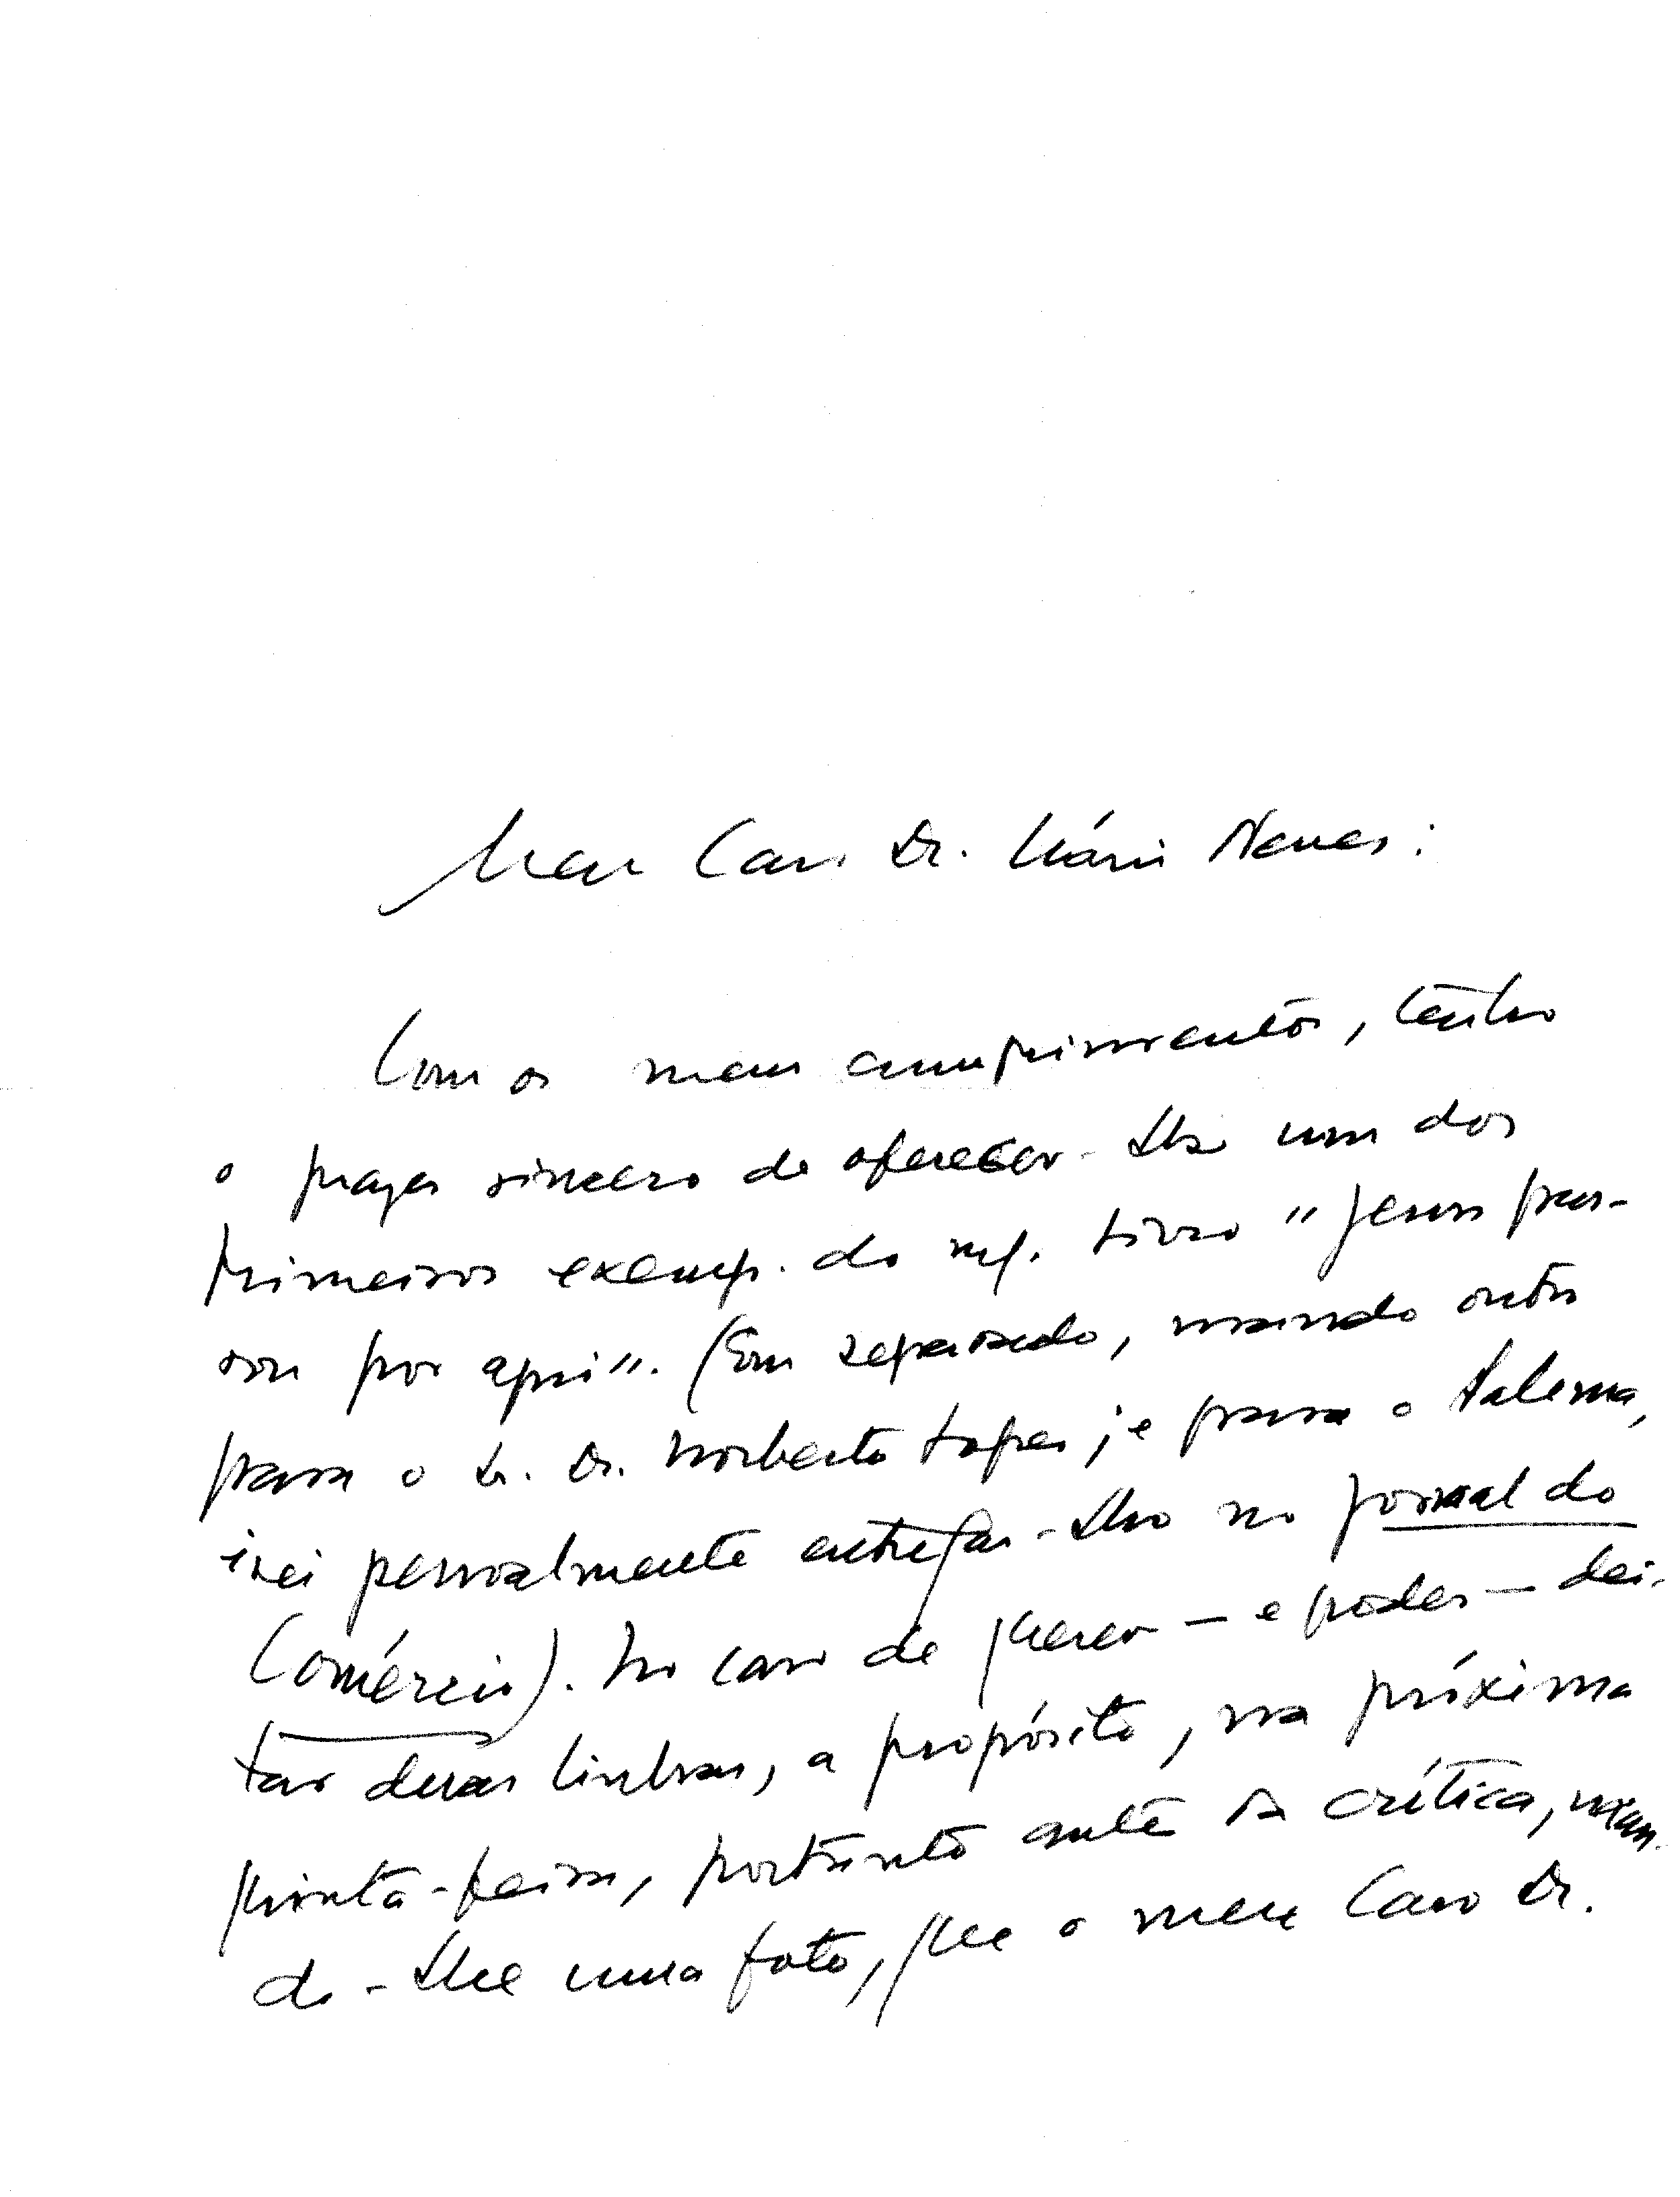 Meu Caro Dr. Mário Neves:
Com os meus cumprimentos, tenho
o prazer sincero de oferecer-lhe um dos
primeiros exemp. do livro "Jesus pas-
sou por aqui". (Em separado, mando outro
para o Sr. Dr. Norberto Lopes; e para o
irei pessoalmente entregar-lho no Jornal do
Comércio). No caso de querer — e poder — dei-
tar duas linhas, a propósito, na próxima
quinta-feira, portanto ante a crítica, man-
do-lhe uma foto, que o meu Caro Dr.